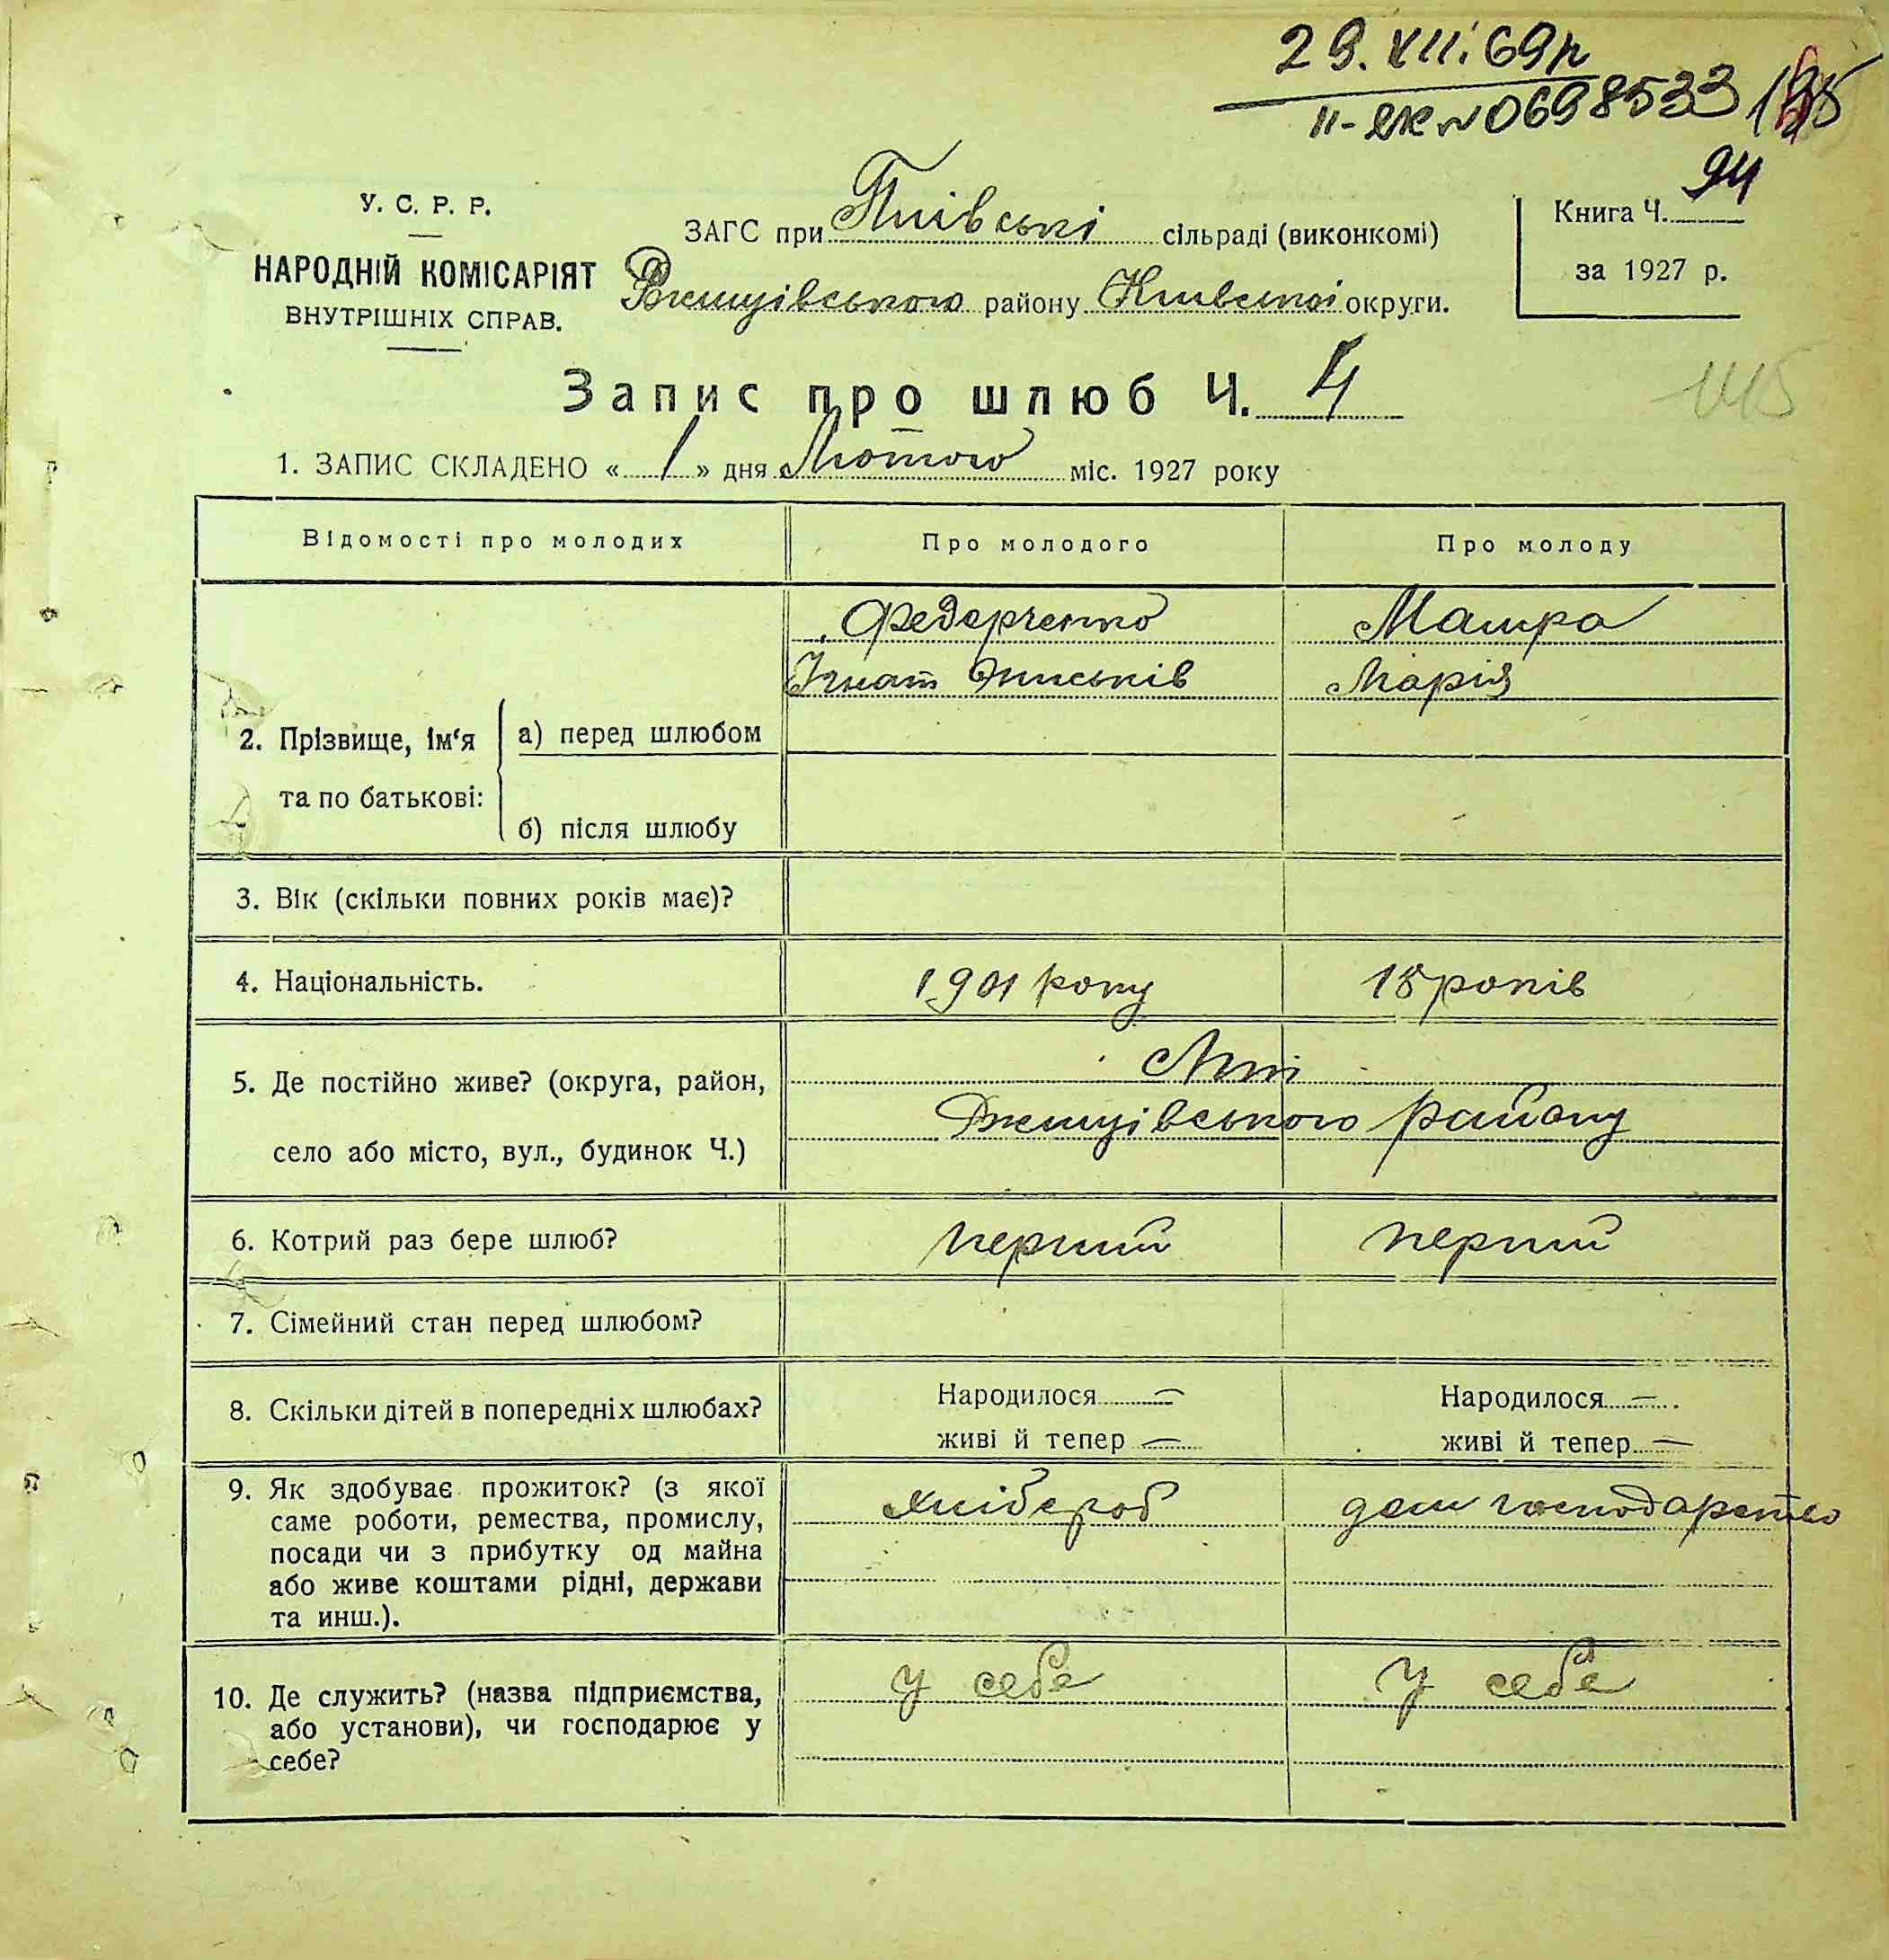 29.XII.69р
II-ЯК № 0698533
94
У. С. Р. Р.
НАРОДНІЙ КОМІСАРІЯТ
ВНУТРІШНІХ СПРАВ.
ЗАГС при сільраді (виконкомі)
Ржищівського району Київської округи.
Книга Ч.
за 1927 р.
145
Запис про шлюб Ч. 4
1. ЗАПИС СКЛАДЕНО « 1 » дня Лютого міс. 1927 року
Відомості про молодих Про молодого Про молоду
2. Прізвище, ім'я та по батькові:
а) перед шлюбом
б) після шлюбу
Федорченко
Ігнат
Мащра
Марія
3. Вік (скільки повних років має)?
4. Національність. 1901 року 18 років
5. Де постійно живе? (округа, район,
село або місто, вул., будинок Ч.)
Ржищівського району
6. Котрий раз бере шлюб? перший перший
7. Сімейний стан перед шлюбом?
8. Скільки дітей в попередніх шлюбах?
Народилося —
живі й тепер —
Народилося —
живі й тепер —
9. Як здобуває прожиток? (з якої
саме роботи, ремества, промислу,
посади чи з прибутку од майна
або живе коштами рідні, держави
та инш.).
хлібороб
дом господарство
10. Де служить? (назва підприємства,
або установи), чи господарює у
себе?
у себе
у себе